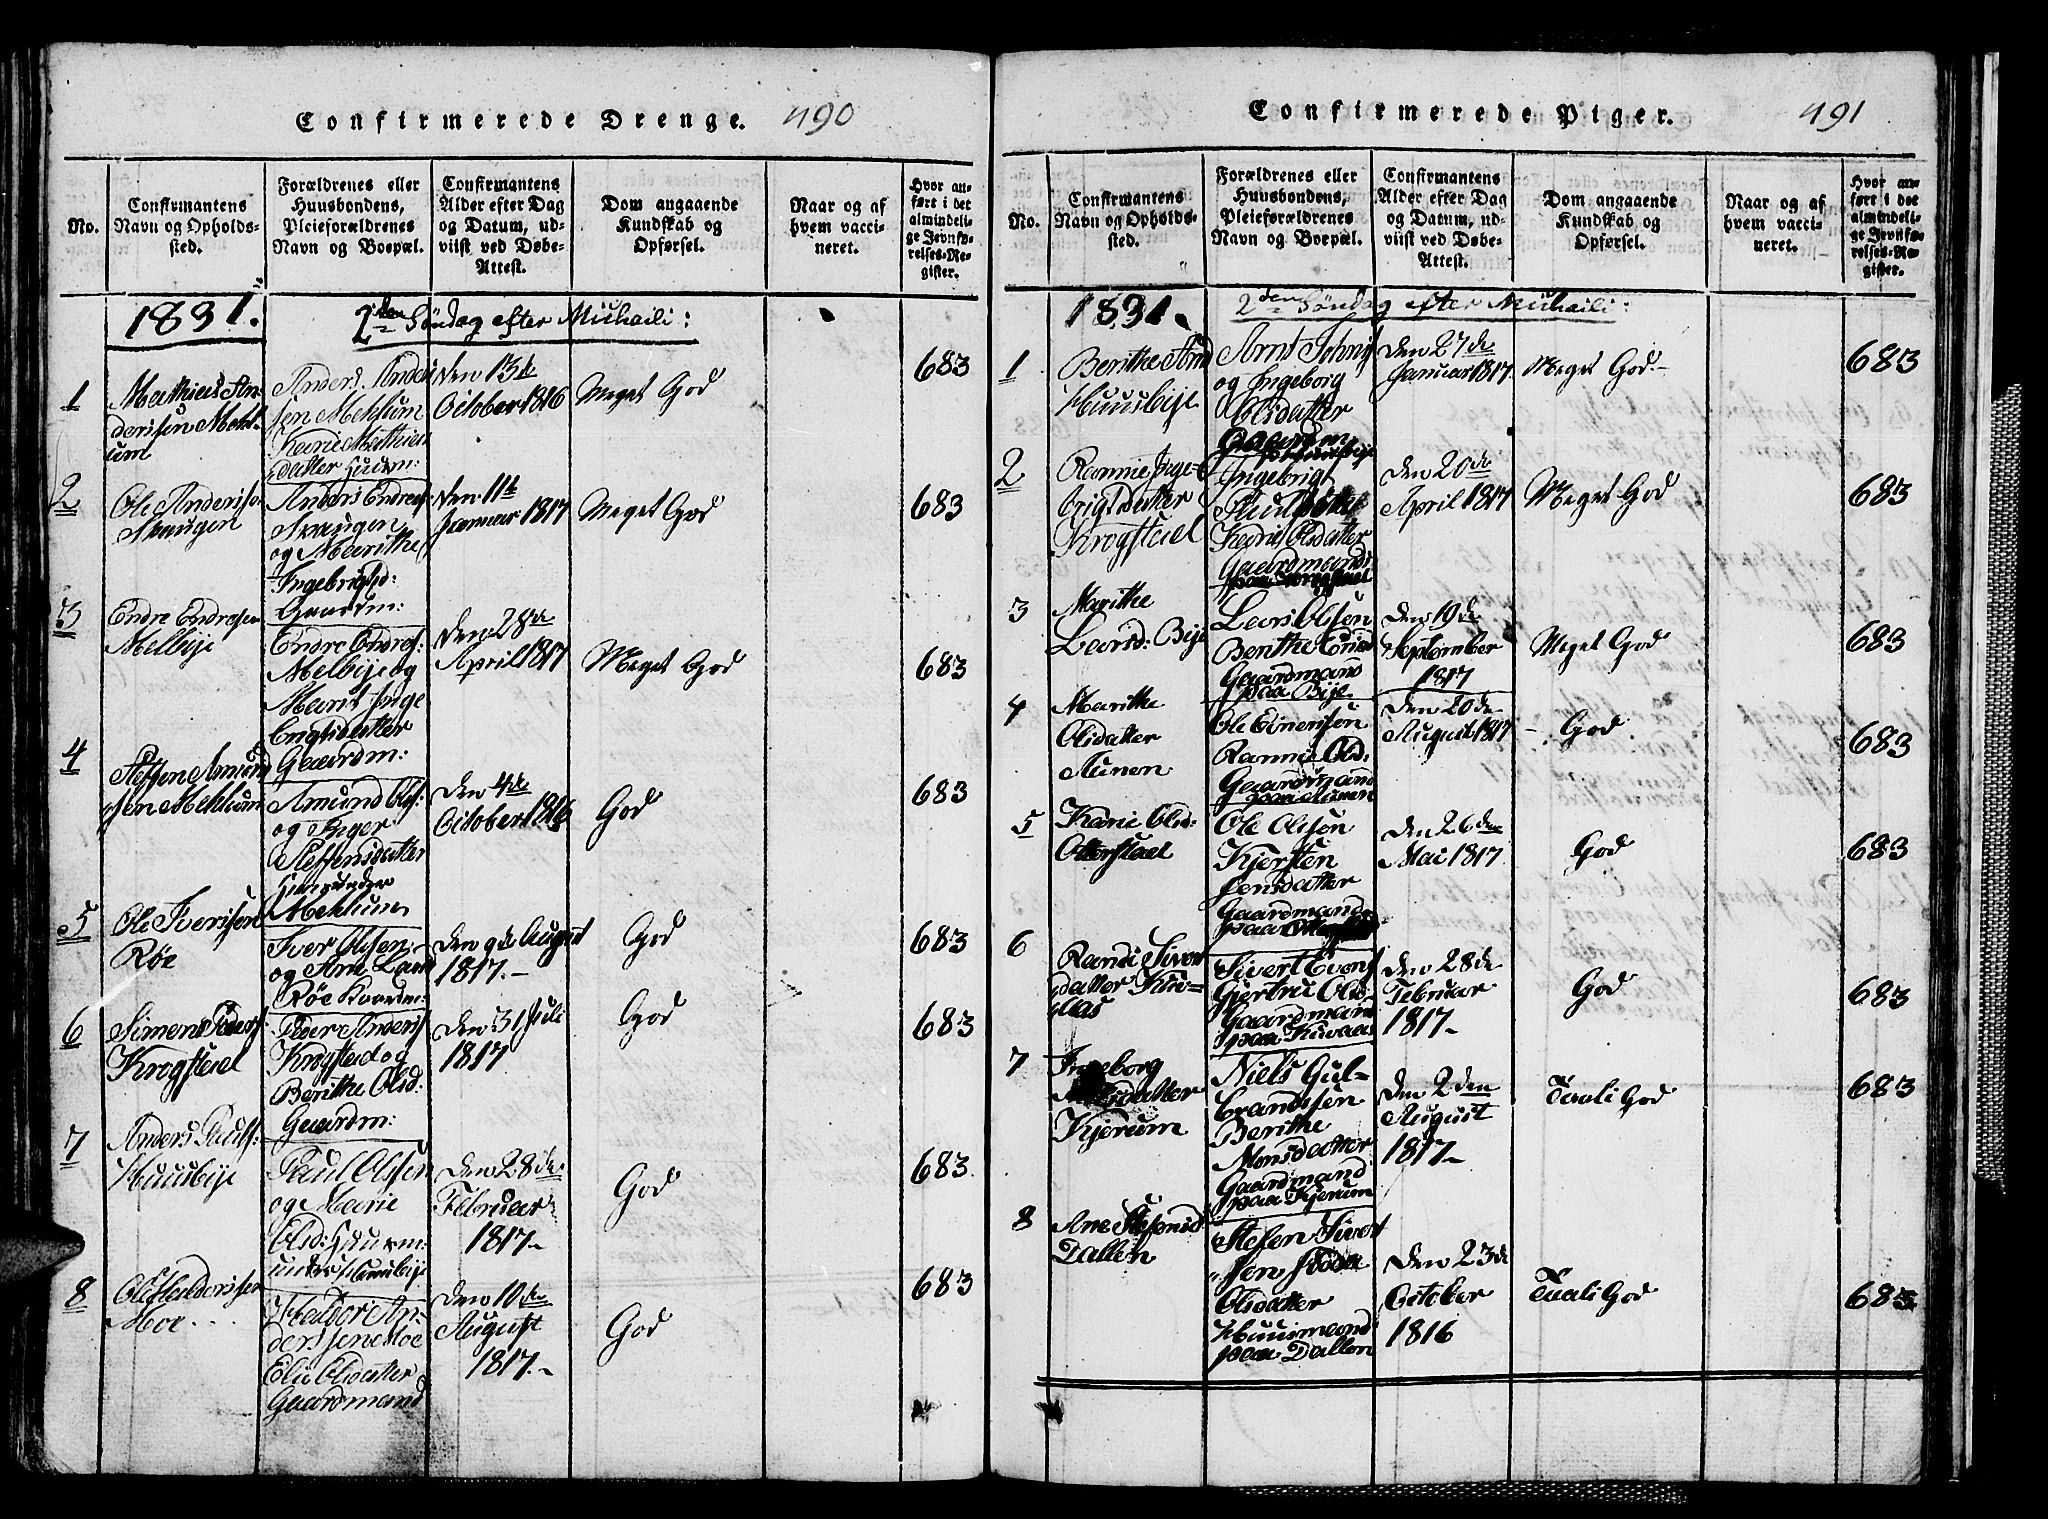 Confirmerede Drenge. 490
No.
Confirmantens
Navn og Opholds-
sted.
Forældrenes eller
Huusbondens,
Pleieforældrenes
Navn og Boepæl.
Confirmantens
Alder efter Dag
og Datum, ud-
viist ved Døbe-
Attest.
Dom angaaende
Kundskab og
Opførsel.
Naar og af
hvem vacci-
neret.
Hvor an-
ført i det
almindeli-
ge Jevnfø-
relses-Re-
gister.
1831. 2den Søndag efter Michaili:
1
Mathias An-
derssen Mehl-
um
Anders Ander
sen Mehlum
Karie Mathias
datter Huusm:
Den 13de
October 1816
Meget God
683
2
Ole Anderssen
Skaugen
Anders Endres:
Skaugen
og Marithe
Ingebrigtsd:
Gaardm:
Den 11te
Januar 1817
Meget God
683
3
Endre Endresen
Melbije
Endre Endres:
Melbije og
Marit Inge
brigtsdatter
Gaardm:
Den 28de
April 1817
Meget God
683
4
Steffen Amund
sen Mehlum
Amund Ols:
og Inger
Steffensdatter
Huusm under
Mehlum
Den 4de
October 1816
God
683
5
Ole Iverssen
Røe
Iver Olsen
og Ane Lars
Røe Gaardm:
Den 9de August
1817.-
God
683
6
Simen Peders
Krogstad
Peder Anders
Krogstad og
Berithe Olsd:
Gaardm:
Den 31 Juli
1817
God
683
7
Anders Pauls:
Huusbije
Paul Olssen
og Marie
Olsd: Huusm:
under Huusbije
Den 28de
Februar
1817.-
God
683
8
Ole Haldorssen
Moe...
Haldor An-
derssen Moe
Eli Olsdatter
Gaardmand
Den 10de
August
1817.-
God
683
Confirmerede Piger. 491
No.
Confirmantens
Navn og Opholds-
sted.
Forældrenes eller
Huusbondens,
Pleieforældrenes
Navn og Boepæl.
Confirmantens
Alder efter Dag
og Datum, ud-
viist ved Døbe-
Attest.
Dom angaaende
Kundskab og
Opførsel.
Naar og af
hvem vacci-
neret.
Hvor an-
ført i det
almindeli-
ge Jevnfø-
relses-Re-
gister.
1831. 2den Søndag efter Michaili:
1
Berithe Arnd
Huusbije
Arnt Johns
og Ingeborg
Olsdatter
Gaardm
paa Huusbije
Den 27de
Januar 1817.
Meget God.-
683
2
Rannie Inge-
brigtsdatter
Krogstad
Ingebrigt
Karie Olsdatter
Gaardmand
paa Krogstad
Den 20de
April 1817
Meget God
683
3
Marithe
Larsd: Bije
Lars Olsen
Berithe
Gaardmand
paa Bije
Den 19de
September
1817
Meget God
683
4
Marithe
Olsdatter
Aunen
Ole Einerssen
Rannie Olsd:
Gaardmand
paa Aunen
Den 20de
August 1817
God
683
5
Karie Olsd:
Otterstad
Ole Olsson
Kjersten
Jensdatter
Gaardmand
paa Otterstad
Den 26den
Mai 1817
God
683
6
Randi Siver
datter Kua-
Sivert Evens
Gjertru Olsd
Gaardmand
paa
Den 28de
Februar
1817-
God
683
7
Ingeborg
Nielsdatter
Kjerum
Niels Gul-
brandssen
Berithe
Monsdatter
Gaardmand
paa Kjerum
Den 2den
August
1817-
Taali God
683
8
Ane Stefensd
Dallen
Stefen Siver
sen
Olsdatter
Huusmand
paa Dallen
Den 23de
October
1816
Taali God
683